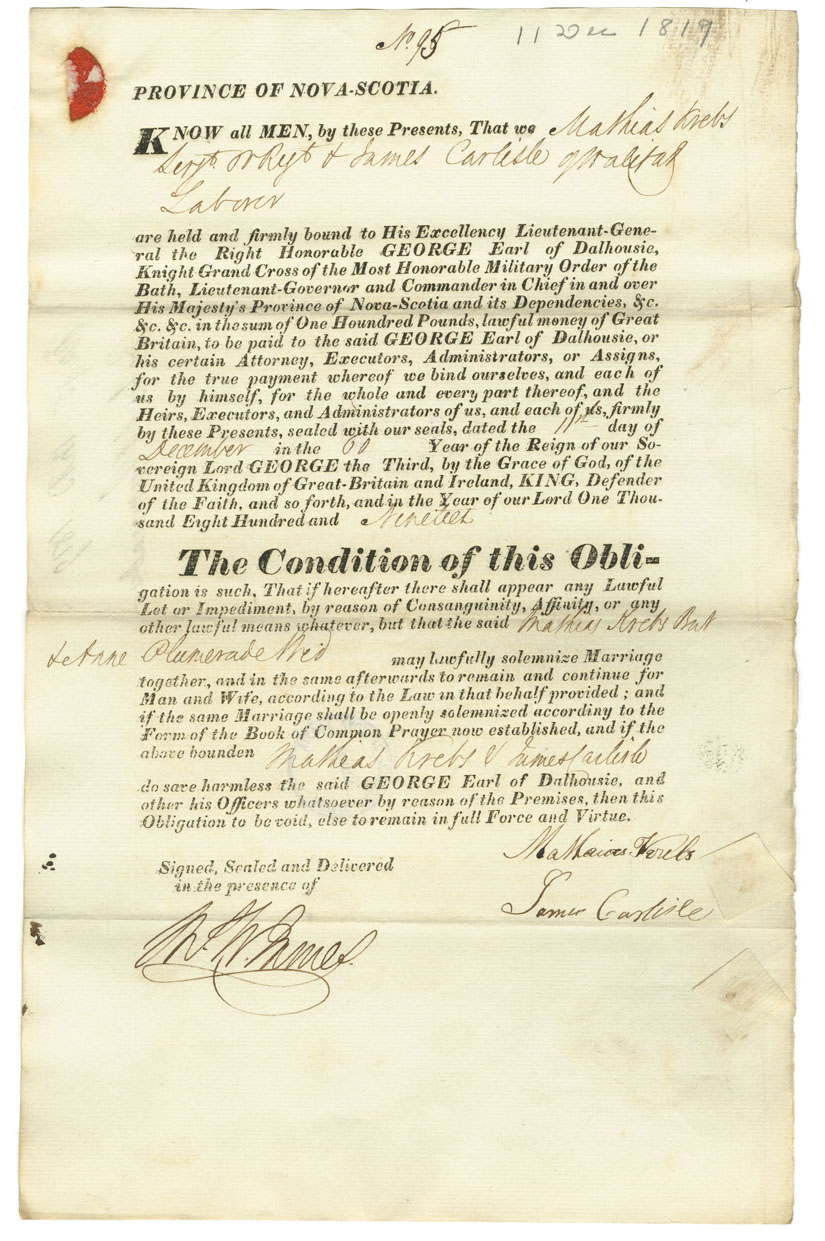 No. 95
11 Dec 1819
PROVINCE OF NOVA-SCOTIA.
KNOW all MEN, by these Presents, That we Mathias Krebs
Sergt. Regt & James Carlisle of Halifax
Laborer
are held and firmly bound to His Excellency Lieutenant-Gene-
ral the Right Honorable GEORGE Earl of Dalhousie,
Knight Grand Cross of the Most Honorable Military Order of the
Bath, Lieutenant-Governor and Commander in Chief in and over
His Majesty's Province of Nova-Scotia and its Dependencies, &c.
&c. &c. in the sum of One Houndred Pounds, lawful money of Great
Britain, to be paid to the said GEORGE Earl of Dalhousie, or
his certain Attorney, Executors, Administrators, or Assigns,
for the true payment whereof we bind ourselves, and each of
us by himself, for the whole and every part thereof, and the
Heirs, Executors, and Administrators of us, and each of us, firmly
by these Presents, sealed with our seals, dated the 11th day of
December in the 60 Year of the Reign of our So-
vereign Lord GEORGE the Third, by the Grace of God, of the
United Kingdom of Great-Britain and Ireland, KING, Defender
of the Faith, and so forth, and in the Year of our Lord One Thou-
sand Eight Hundred and
The Condition of this Obli-
gation is such, That if hereafter there shall appear any Lawful
Let or Impediment, by reason of Consanguinity, Affinity, or any
other lawful means whatever, but that the said Mathias Krebs
& Anne may lawfully solemnize Marriage
together, and in the same afterwards to remain and continue for
Man and Wife, according to the Law in that behalf provided ; and
if the same Marriage shall be openly solemnized accordiny to the
Form of the Book of Common Prayer now established, and if the
above bounden Mathias Krebs & James Carlisle
do save harmless the said GEORGE Earl of Dalhousie, and
other his Officers whatsoever by reason of the Premises, then this
Obligation to be void, else to remain in full Force and Virtue.
Signed, Sealed and Delivered
in the presence of
Mathias Krebs
James Carlisle